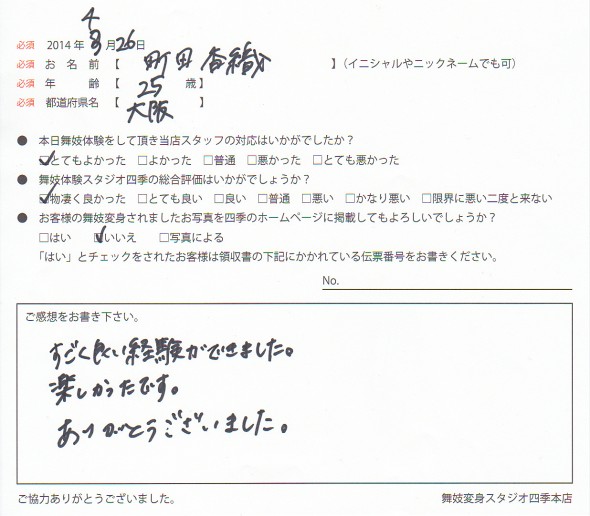 4
必須 2014年 3月26日
必須 お名前 【 町田 香織 】(イニシャルやニックネームでも可)
必須 年齢 【 25 歳】
必須 都道府県名 【 大阪 】
● 本日舞妓体験をして頂き当店スタッフの対応はいかがでしたか?
☑とてもよかった □よかった □普通 □悪かった □とても悪かった
● 舞妓体験スタジオ四季の総合評価はいかがでしょうか?
☑物凄く良かった □とても良い □良い □普通 □悪い □かなり悪い □限界に悪い二度と来ない
● お客様の舞妓変身されましたお写真を四季のホームページに掲載してもよろしいでしょうか?
□はい ☑いいえ □写真による
「はい」とチェックをされたお客様は領収書の下記にかかれている伝票番号をお書きください。
No.
ご感想をお書き下さい。
すごく良い経験ができました。
楽しかったです。
ありがとうございました。
ご協力ありがとうございました。 舞妓変身スタジオ四季本店